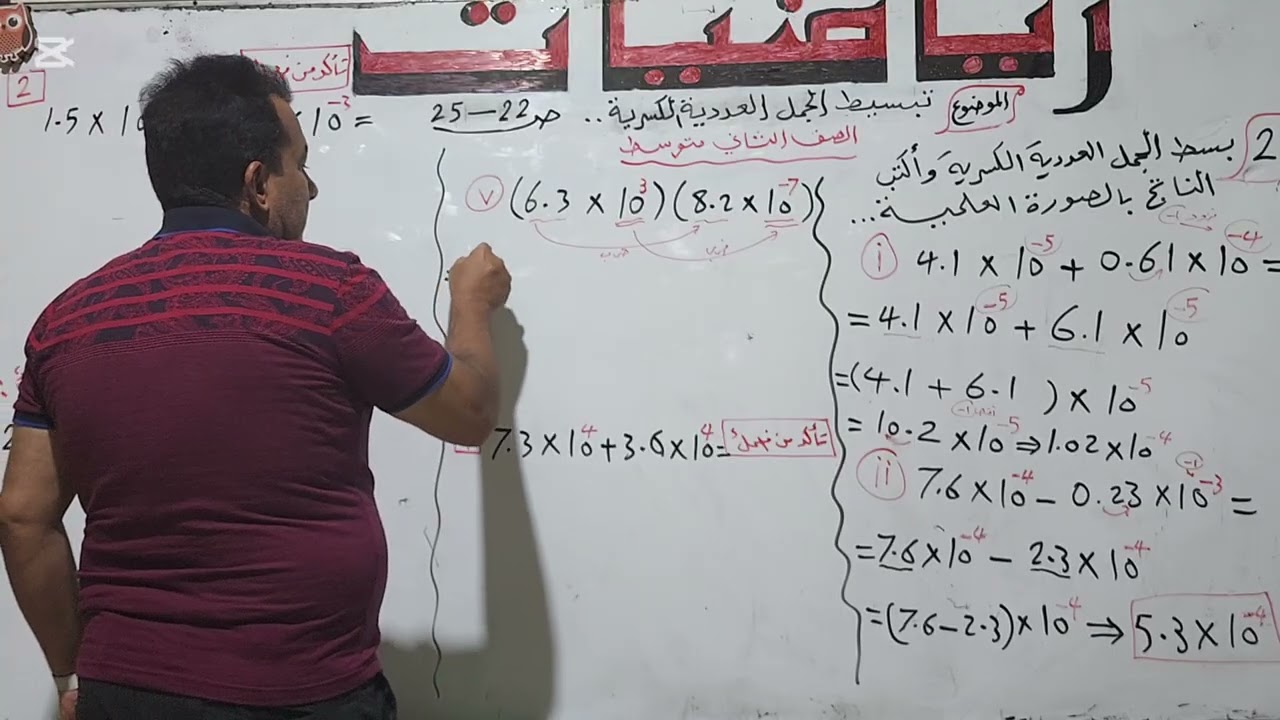 رياضيات
الموضوع تبسيط الجمل العددية الكسرية .. ص 22 – 25
الصف الثاني متوسط
2 بسط الجمل العددية الكسرية وأكتب
الناتج بالصورة العلمية...
نزود 1-
i 4.1 × 10⁻⁵ + 0.61 × 10⁻⁴ =
= 4.1 × 10⁻⁵ + 6.1 × 10⁻⁵
= (4.1 + 6.1 ) × 10⁻⁵
= 10.2 × 10⁻⁵ ⇒ 1.02 × 10⁻⁴
-1
ii 7.6 × 10⁻⁴ – 0.23 × 10⁻³ =
= 7.6 × 10⁻⁴ – 2.3 × 10⁻⁴
= (7.6 – 2.3) × 10⁻⁴ ⇒ 5.3 × 10⁻⁴
v (6.3 × 10³) (8.2 × 10⁻⁷)
ضرب ضرب
7.3 × 10⁴ + 3.6 × 10⁴ = تأكد من فهمك
تأكد من
2
1.5 × 10
× 10⁻³ =
2